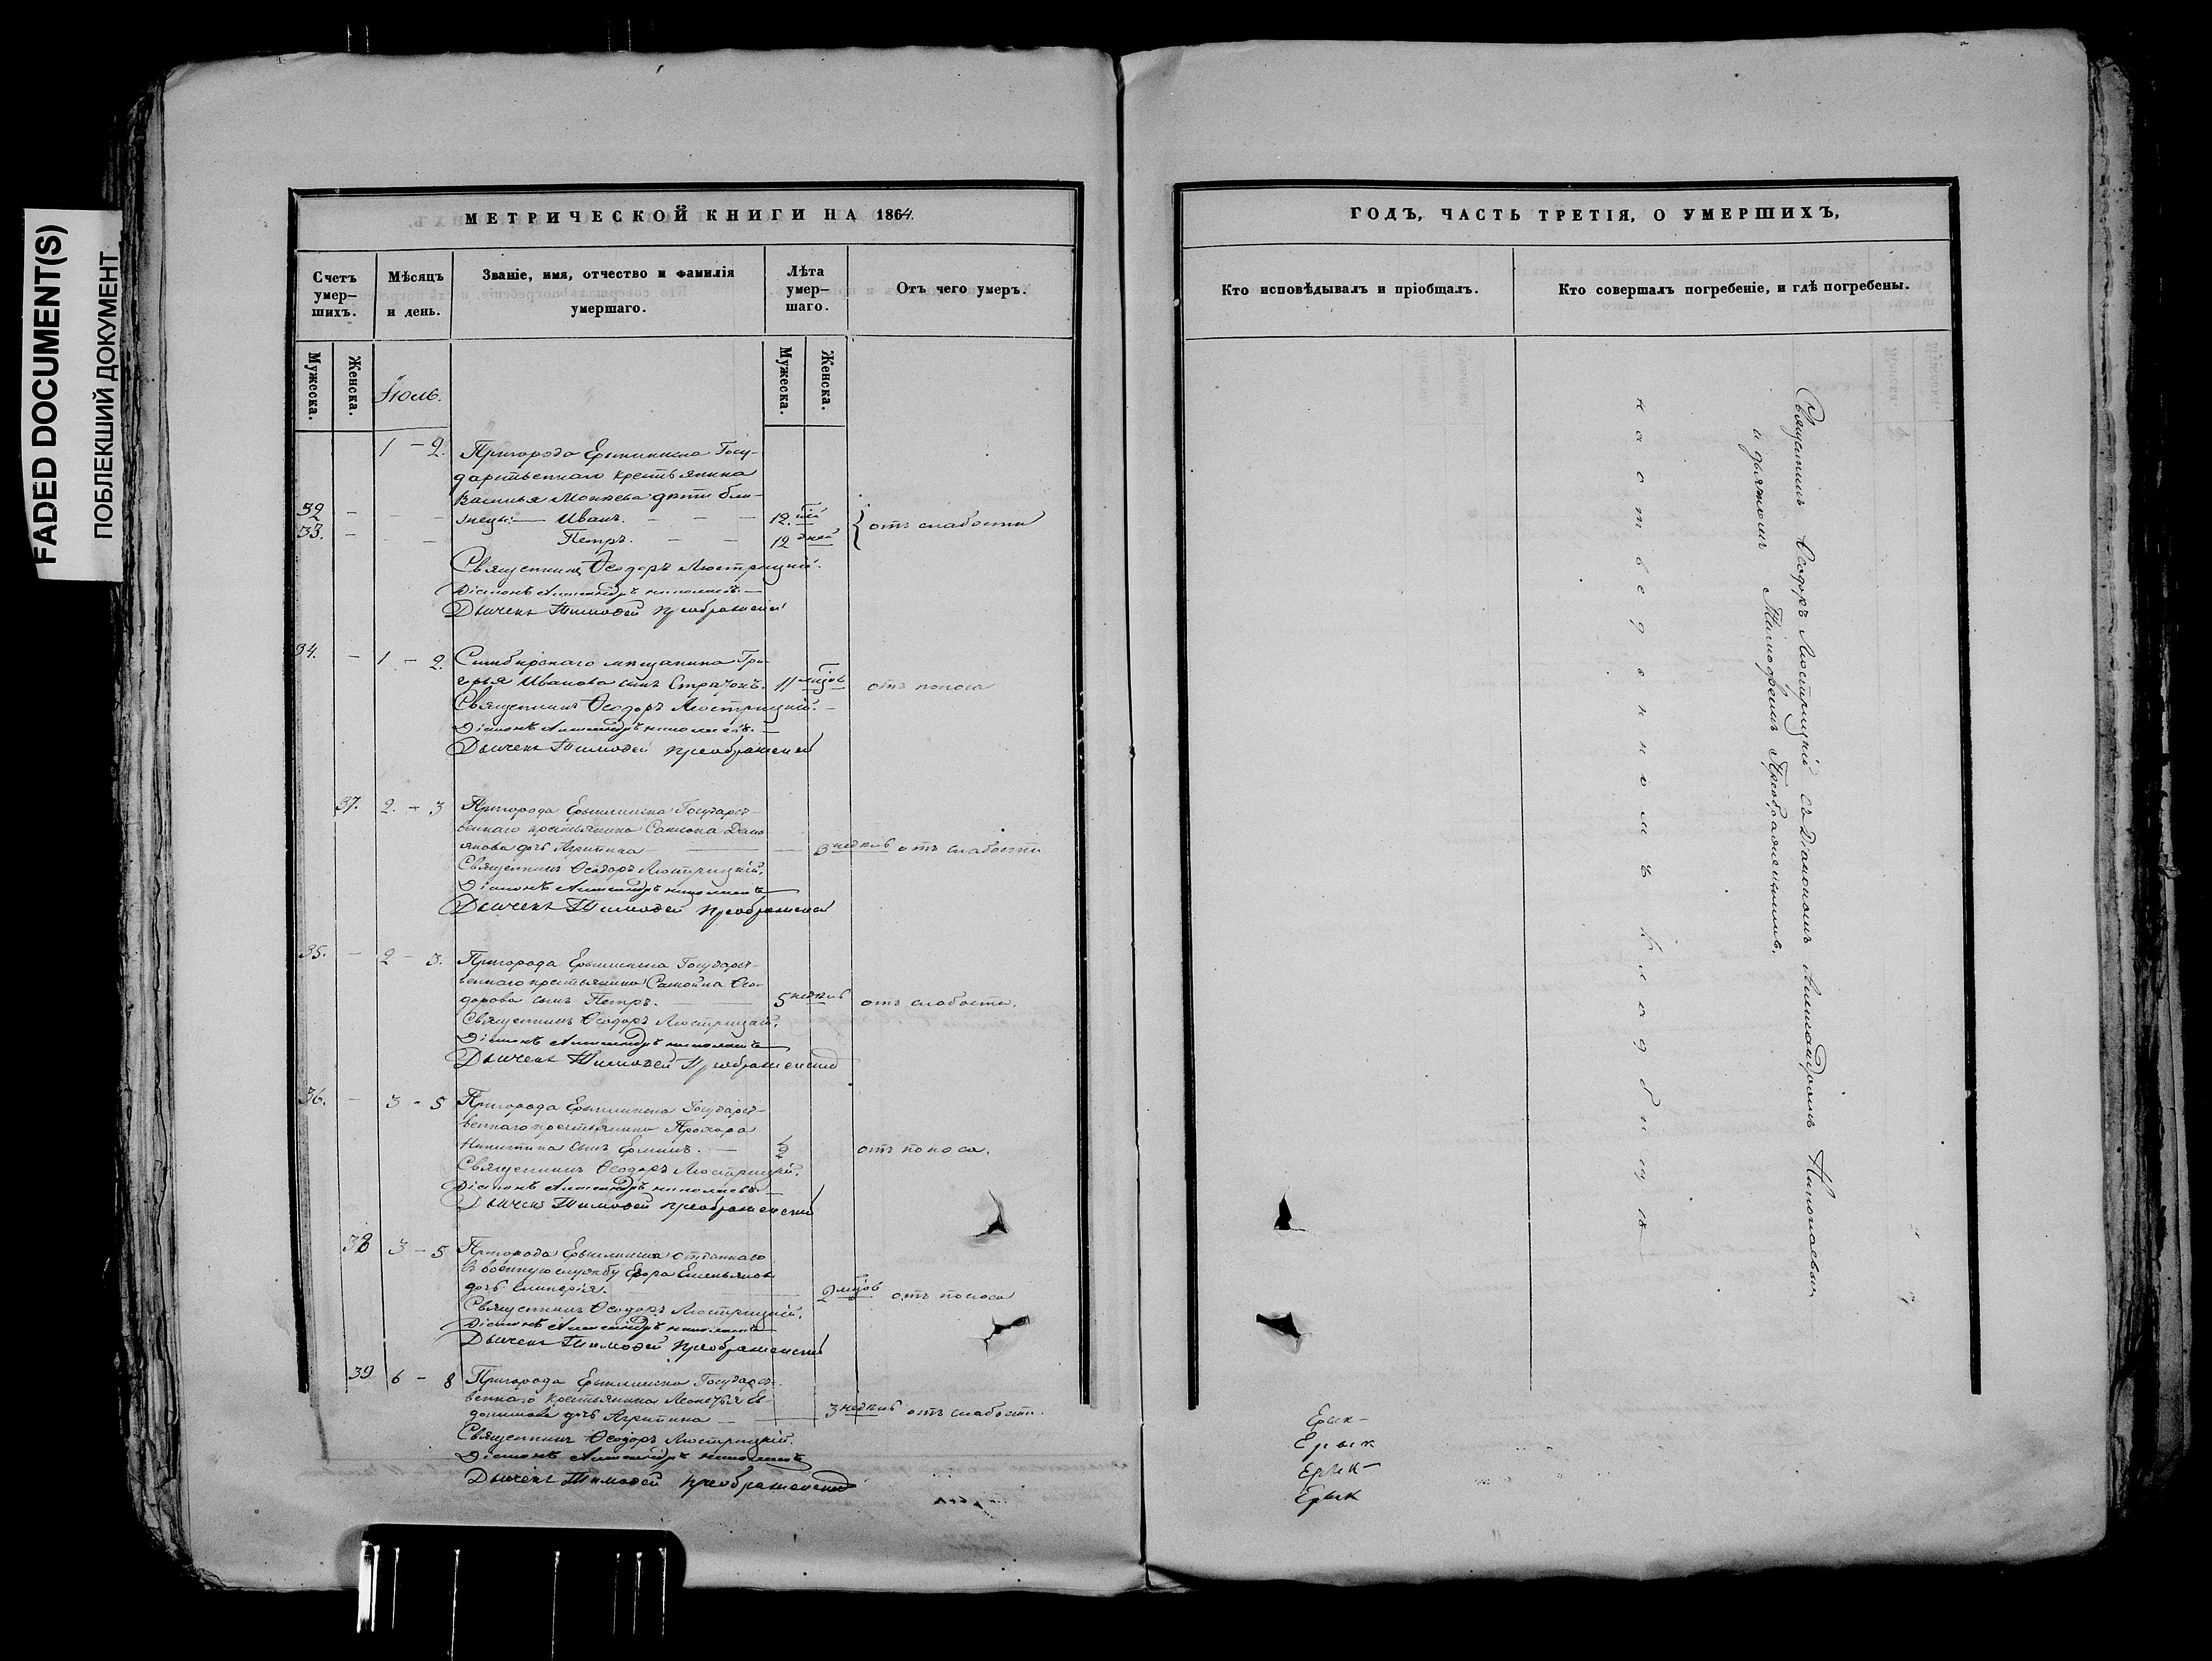 FADED DOCUMENT(S)
ПОБЛЕКШИЙ ДОКУМЕНТ
МЕТРИЧЕСКОЙ КНИГИ НА 1864.
Счетъ умер-
шихъ.
Мѣсяцъ
и день.
Званіе, имя, отчество и фамилія
умершаго.
Лѣта
умер-
шаго.
Отъ чего умеръ.
Мужеска.
Женска.
Мужеска.
Женска.
Іюль.
1 - 2. Пригорода Ерыклинска Госу-
дарственнаго крестьянина
Василья дѣти бли-
32 - знецы: Иванъ. 12.
33. - Петръ. 12 дней отъ слабости
Священникъ Ѳеодоръ Люстрицкій.
Діаконъ Александръ Николаевъ.
Дьячекъ Тимофей Преображенскій
34. - 1 - 2. Симбирскаго мѣщанина Гри-
горья Иванова сынъ 11 мѣсяцов отъ поноса
Священникъ Ѳеодоръ Люстрицкій.
Діаконъ Александръ Николаевъ.
Дьячекъ Тимофей Преображенскій
37. 2. - 3 Пригорода Ерыклинска Государст-
веннаго крестьянина Самсона Демь-
янова дочь Агрипина 3 недѣль отъ слабости
Священникъ Ѳеодоръ Люстрицкій.
Діаконъ Александръ Николаевъ
Дьячекъ Тимофей Преображенскій
35. - 2 - 3. Пригорода Ерыклинска Государст-
веннаго крестьянина Ѳео-
дорова сынъ Петръ. 5 недѣль отъ слабости.
Священникъ Ѳеодоръ Люстрицкій.
Діаконъ Александръ Николаевъ
Дьячекъ Тимофей Преображенскій
36. - 3 - 5 Пригорода Ерыклинска Государст-
веннаго крестьянина Прохора
Никитина сынъ отъ поноса.
Священникъ Ѳеодоръ Люстрицкій.
Діаконъ Александръ Николаевъ.
Дьячекъ Тимофей Преображенскій
38 3 - 5 Пригорода Ерыклинска отданнаго
въ военную службу Егора Емельянова
дочь 2 мѣсяцов отъ поноса
Священникъ Ѳеодоръ Люстрицкій.
Діаконъ Александръ Николаевъ
Дьячекъ Тимофей Преображенскій
39 6 - 8 Пригорода Ерыклинска Государст-
веннаго крестьянина Леонтья Ев-
докимова дочь Агрипина 3 недѣль отъ слабости.
Священникъ Ѳеодоръ Люстрицкій.
Діаконъ Александръ Николаевъ
Дьячекъ Тимофей Преображенскій
ГОДЪ, ЧАСТЬ ТРЕТІЯ, О УМЕРШИХЪ,
Кто исповѣдывалъ и пріобщалъ.
Кто совершалъ погребеніе, и гдѣ погребены.
Священникъ Ѳеодоръ Люстрицкій съ Діакономъ Александромъ Николаевымъ
и дьячкомъ Тимофеемъ Преображенскимъ,
на отведенномъ кладбищѣ
Ерык-
Ерык
Ерык-
Ерык